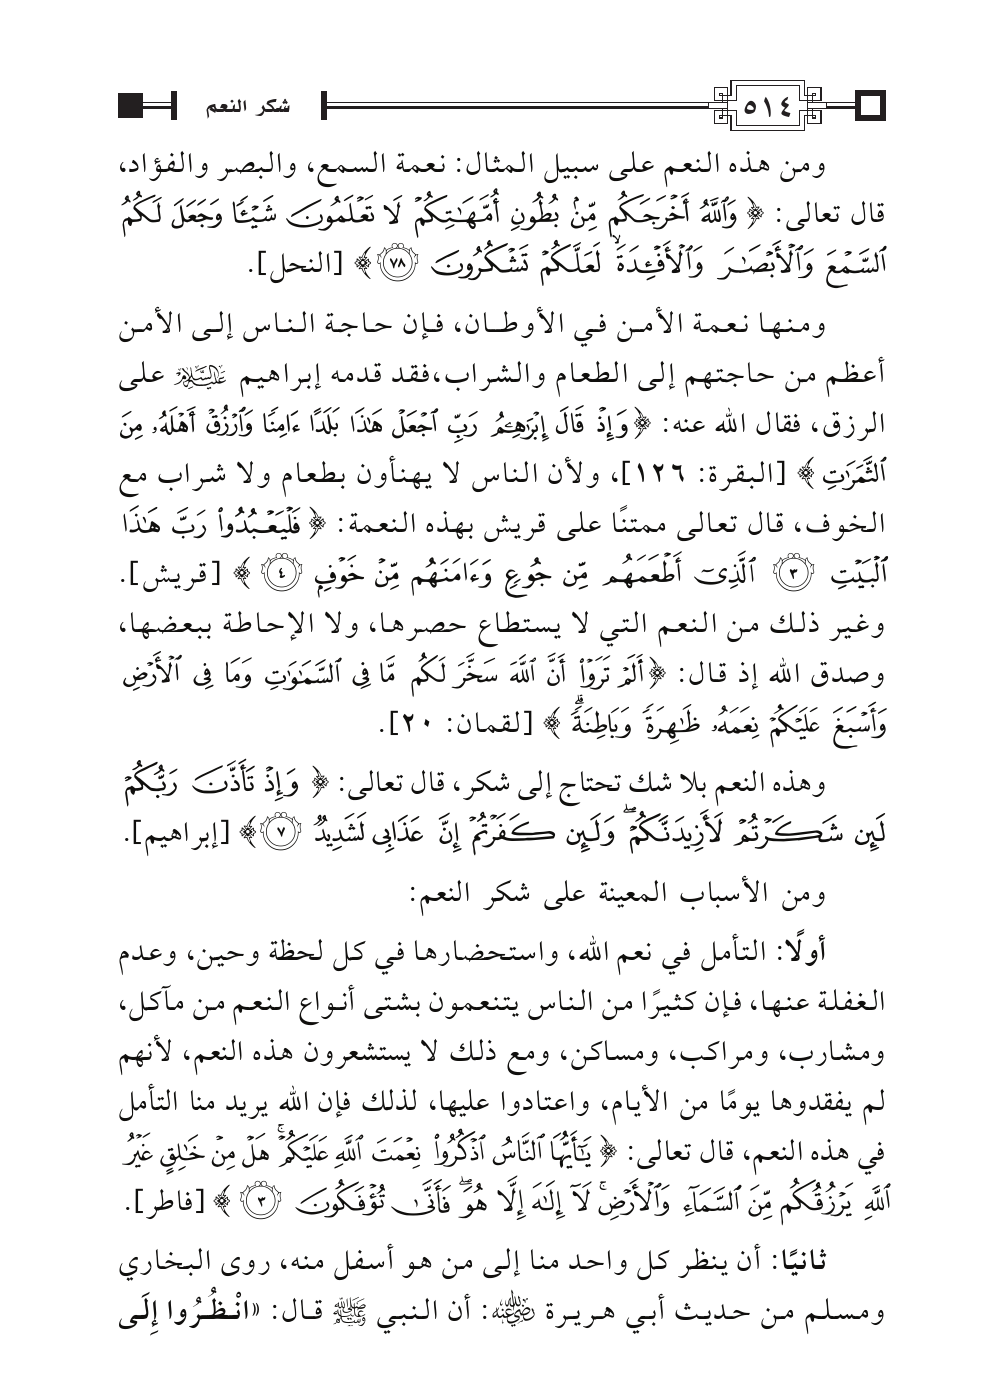 ٥١٤ شكر النعم
ومن هذه النعم على سبيل المثال: نعمة السمع، والبصر والفؤاد،
قال تعالى: ﴿ وَٱللَّهُ أَخۡرَجَكُم مِّنۢ بُطُونِ أُمَّهَٰتِكُمۡ لَا تَعۡلَمُونَ شَيۡـٔٗا وَجَعَلَ لَكُمُ
ٱلسَّمۡعَ وَٱلۡأَبۡصَٰرَ وَٱلۡأَفۡـِٔدَةَۙ لَعَلَّكُمۡ تَشۡكُرُونَ ٧٨﴾ [النحل].
ومنها نعمة الأمن في الأوطان، فإن حاجة الناس إلى الأمن
أعظم من حاجتهم إلى الطعام والشراب،فقد قدمه إبراهيم عليه السلام على
الرزق، فقال الله عنه: ﴿وَإِذۡ قَالَ إِبۡرَٰهِـۧمُ رَبِّ ٱجۡعَلۡ هَٰذَا بَلَدًا ءَامِنٗا وَٱرۡزُقۡ أَهۡلَهُۥ مِنَ
ٱلثَّمَرَٰتِ ﴾ [البقرة: ١٢٦]، ولأن الناس لا يهنأون بطعام ولا شراب مع
الخوف، قال تعالى ممتنًا على قريش بهذه النعمة: ﴿ فَلۡيَعۡبُدُواْ رَبَّ هَٰذَا
ٱلۡبَيۡتِ ٣ ٱلَّذِيٓ أَطۡعَمَهُم مِّن جُوعٖ وَءَامَنَهُم مِّنۡ خَوۡفِۭ ٤ ﴾ [قريش].
وغير ذلك من النعم التي لا يستطاع حصرها، ولا الإحاطة ببعضها،
وصدق الله إذ قال: ﴿أَلَمۡ تَرَوۡاْ أَنَّ ٱللَّهَ سَخَّرَ لَكُم مَّا فِي ٱلسَّمَٰوَٰتِ وَمَا فِي ٱلۡأَرۡضِ
وَأَسۡبَغَ عَلَيۡكُمۡ نِعَمَهُۥ ظَٰهِرَةٗ وَبَاطِنَةٗۗ ﴾ [لقمان: ٢٠].
وهذه النعم بلا شك تحتاج إلى شكر، قال تعالى: ﴿ وَإِذۡ تَأَذَّنَ رَبُّكُمۡ
لَئِن شَكَرۡتُمۡ لَأَزِيدَنَّكُمۡۖ وَلَئِن كَفَرۡتُمۡ إِنَّ عَذَابِي لَشَدِيدٞ ٧﴾ [إبراهيم].
ومن الأسباب المعينة على شكر النعم:
أولًا: التأمل في نعم الله، واستحضارها في كل لحظة وحين، وعدم
الغفلة عنها، فإن كثيرًا من الناس يتنعمون بشتى أنواع النعم من مآكل،
ومشارب، ومراكب، ومساكن، ومع ذلك لا يستشعرون هذه النعم، لأنهم
لم يفقدوها يومًا من الأيام، واعتادوا عليها، لذلك فإن الله يريد منا التأمل
في هذه النعم، قال تعالى: ﴿ يَٰٓأَيُّهَا ٱلنَّاسُ ٱذۡكُرُواْ نِعۡمَتَ ٱللَّهِ عَلَيۡكُمۡۚ هَلۡ مِنۡ خَٰلِقٍ غَيۡرُ
ٱللَّهِ يَرۡزُقُكُم مِّنَ ٱلسَّمَآءِ وَٱلۡأَرۡضِۚ لَآ إِلَٰهَ إِلَّا هُوَۖ فَأَنَّىٰ تُؤۡفَكُونَ ٣ ﴾ [فاطر].
ثانيًا: أن ينظر كل واحد منا إلى من هو أسفل منه، روى البخاري
ومسلم من حديث أبي هريرة رضي الله عنه: أن النبي ﷺ قال: «انْظُرُوا إِلَى